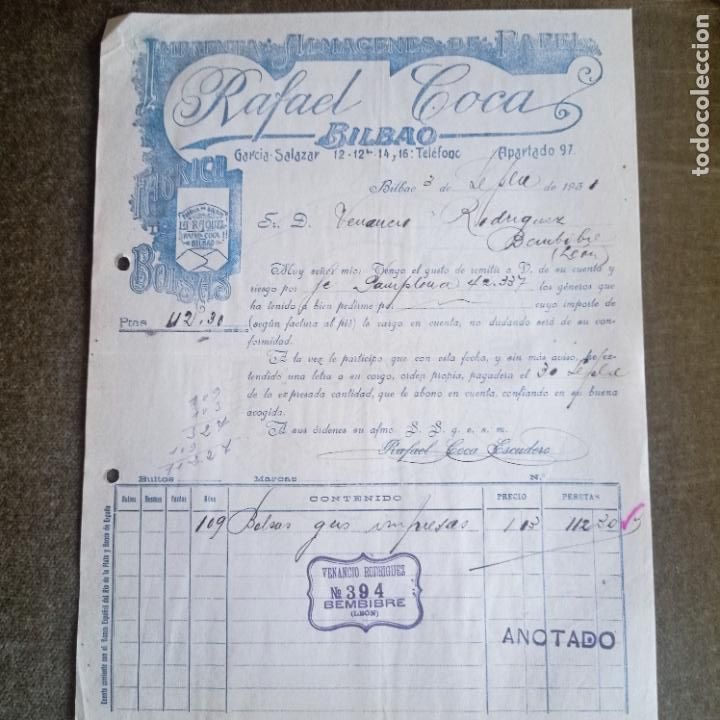 IMPRENTA Y ALMACENES DE PAPEL
Rafael Coca
BILBAO
García-Salazar 12-12bis-14, 16: Teléfono Apartado 97.
FÁBRICA
DE
BOLSAS
LA RAQUEL
RAFAEL COCA
BILBAO
Bilbao 3 de Sepbre de 1931
Sr. D. Venancio Rodriguez
Bembibre
(León)
Muy señor mío: Tengo el gusto de remitir a V. de su cuenta y
riesgo por fc Pamplona 42.337 los géneros que
ha tenido a bien pedirme pr cuyo importe de
Ptas 112,30 (según factura al pié) le cargo en cuenta, no dudando será de su con-
formidad.
A la vez le participo que con esta fecha, y sin más aviso, he ex-
tendido una letra a su cargo, orden propia, pagadera el 30 Sepbre
de la expresada cantidad, que le abono en cuenta, confiando en su buena
acogida.
A sus órdenes su afmo S. S. q. e. s. m.
Rafael Coca Escudero
109
103
327
1 09
11.227
Bultos Marcas N.º
Resmas Kilos CONTENIDO PRECIO PESETAS
109 Bolsas gris impresas 1.03 112 30
VENANCIO RODRIGUEZ
Nº 394
BEMBIBRE
(LEÓN)
ANOTADO
Cuenta corriente con el Banco Español del Río de la Plata y Banco de España
todocoleccion